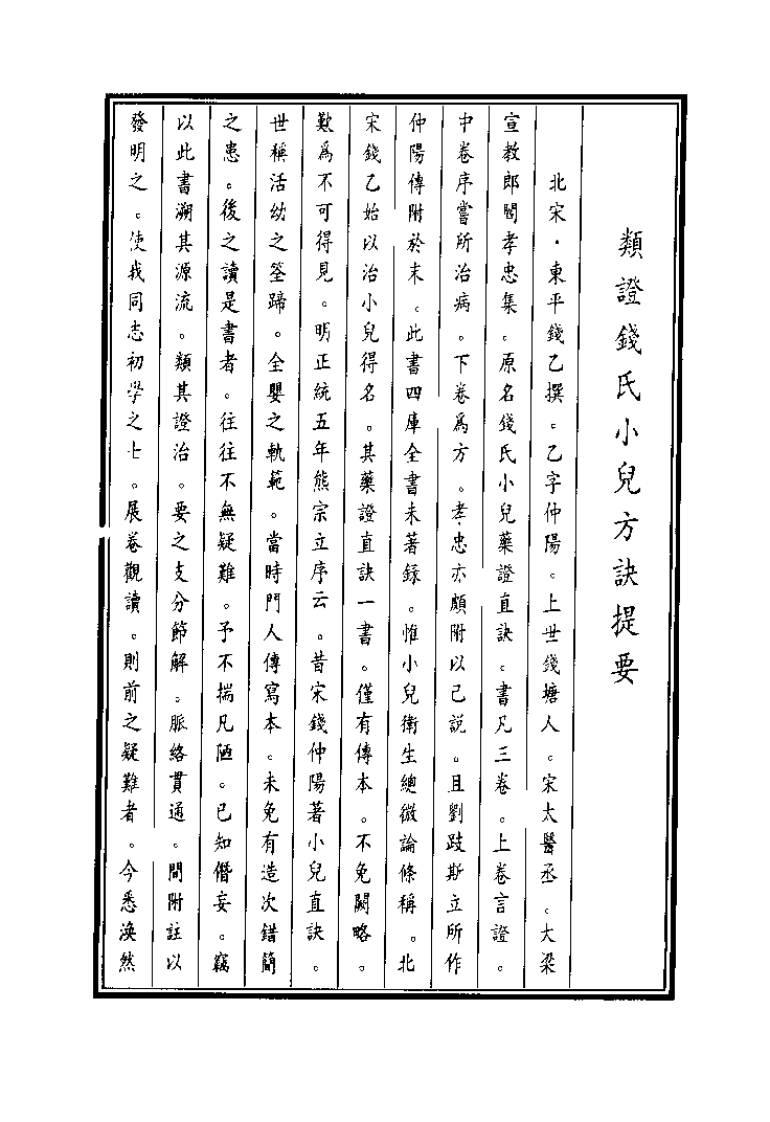 類證錢氏小兒方訣提要
北宋·東平錢乙撰。乙字仲陽。上世錢塘人。宋太醫丞。大梁
宣教郎閻孝忠集。原名錢氏小兒藥證直訣。書凡三卷。上卷言證。
中卷序嘗所治病。下卷爲方。孝忠亦頗附以己説。且劉跂斯立所作
仲陽傳附於末。此書四庫全書未著録。惟小兒衛生總微論條稱。北
宋錢乙始以治小兒得名。其藥證直訣一書。僅有傳本。不免闕略。
歎爲不可得見。明正統五年熊宗立序云。昔宋錢仲陽著小兒直訣。
世稱活幼之筌蹄。全嬰之軌範。當時門人傳寫本。未免有造次錯簡
之患。後之讀是書者。往往不無疑難。予不揣凡陋。已知僭妄。竊
以此書溯其源流。類其證治。要之支分節解。脈絡貫通。間附註以
發明之。使我同志初學之士。展卷觀讀。則前之疑難者。今悉渙然